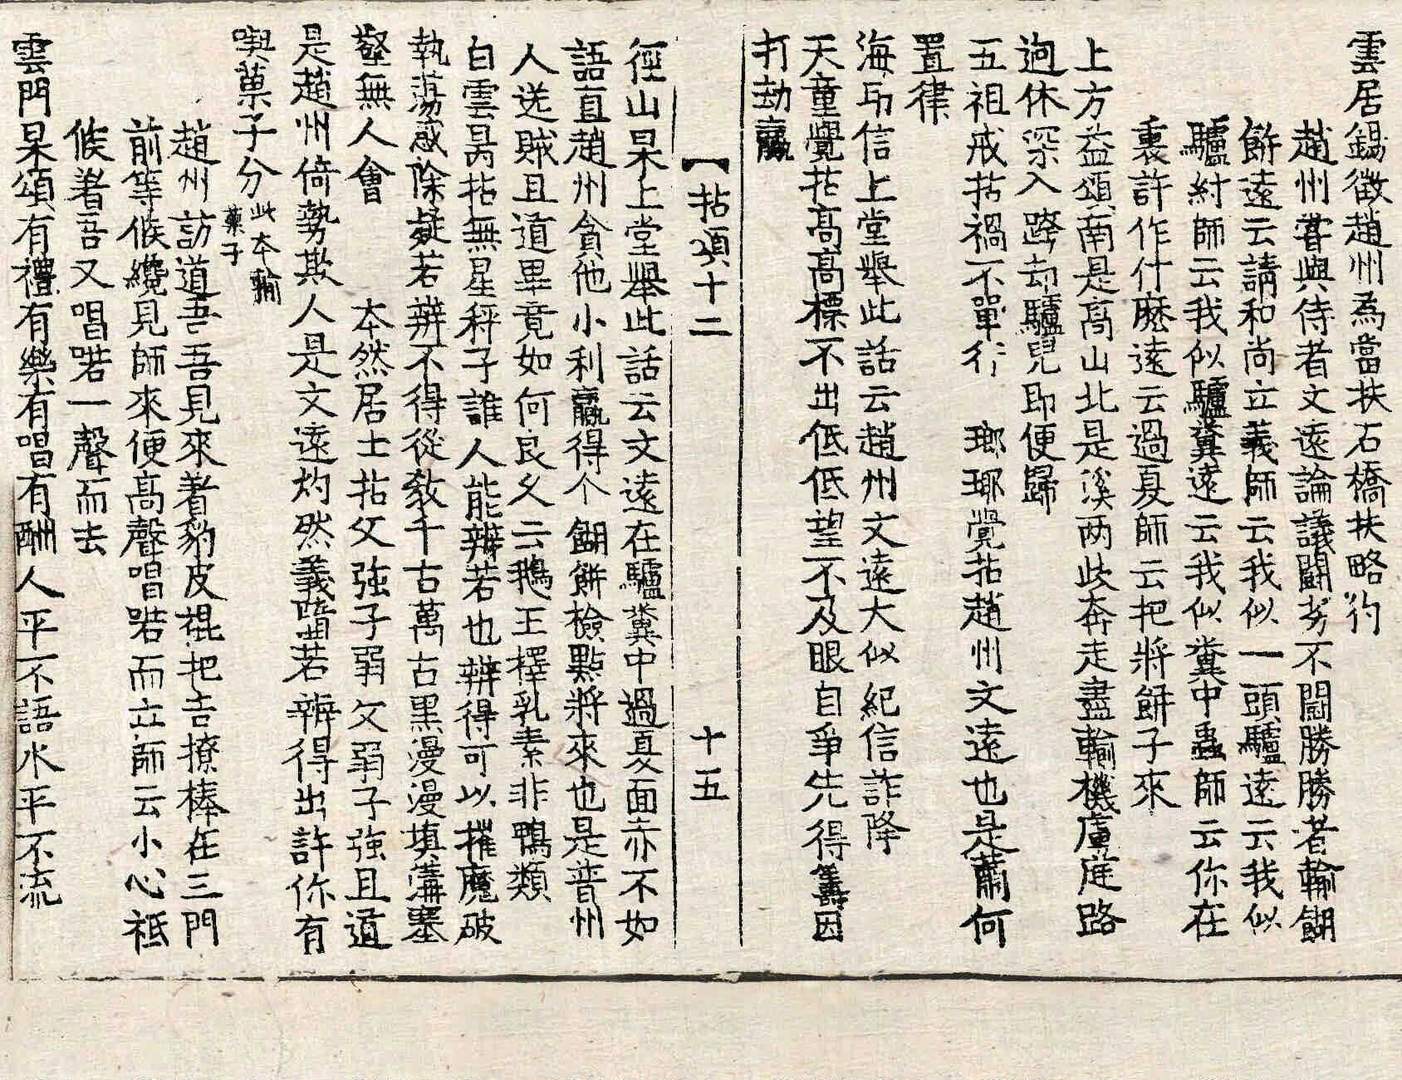 雲居錫徵趙州為當扶石橋扶略彴
趙州甞與侍者文遠論議鬪劣不鬪勝勝者輸餬
餠遠云請和尚立義師云我似一頭驢遠云我似
驢紂師云我似驢糞遠云我似糞中蟲師云你在
裏許作什麽遠云過夏師云把將餠子來
上方益頌南是高山北是溪两此奔走盡輸機廣庭路
逈休深入跨却驢兒即便歸
五祖戒拈禍不單行　瑯瑘覺拈趙州文遠也是蕭何
置律
海印信上堂舉此話云趙州文遠大似紀信詐降
天童覺拈高高標不出低低望不及眼自爭先得籌因
打劫贏
【拈頌十二　十五
徑山杲上堂舉此話云文遠在驢糞中過夏面赤不如
語直趙州貪他小利贏得个餬餠檢點將來也是普州
人送賊且道畢竟如何良久云鵝王擇乳素非鴨類
白雲昺拈無星秤子誰人能辨若也辨得可以摧魔破
執蕩惑除疑若辨不得從教千古萬古黑漫漫填溝塞
壑無人會　本然居士拈父強子弱父弱子強且道
是趙州倚勢欺人是文遠灼然義墮若辨得出許你有
喫菓子分此本輸菓子
趙州訪道吾吾見來着豹皮裩把吉撩棒在三門
前等候纔見師來便高聲唱喏而立師云小心祗
候着吾又唱喏一聲而去
雲門杲頌有禮有樂有唱有酬人平不語水平不流